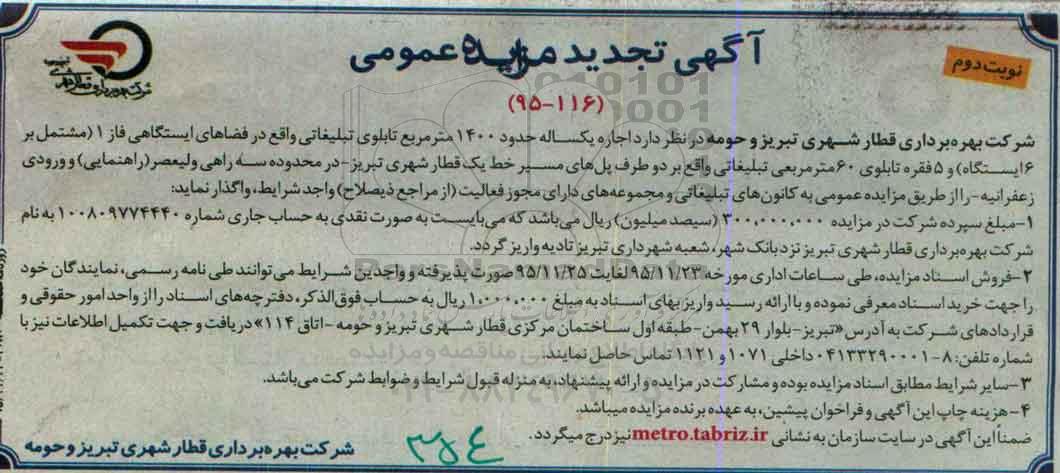 آگهی تجدید مزایده عمومی
نوبت دوم
(۹۵-۱۱۶)
شرکت بهره‌برداری قطار شهری تبریز و حومه در نظر دارد اجاره یکساله حدود ۱۴۰۰ مترمربع تابلوی تبلیغاتی واقع در فضاهای ایستگاهی فاز ۱ (مشتمل بر
۶ ایستگاه) و ۵ فقره تابلوی ۶۰ مترمربعی تبلیغاتی واقع بر دو طرف پل‌های مسیر خط یک قطار شهری تبریز-در محدوده سه راهی ولیعصر (راهنمایی) و ورودی
زعفرانیه- را از طریق مزایده عمومی به کانون‌های تبلیغاتی و مجموعه‌های دارای مجوز فعالیت (از مراجع ذیصلاح) واجد شرایط، واگذار نماید:
۱-مبلغ سپرده شرکت در مزایده ۳۰۰,۰۰۰,۰۰۰ (سیصد میلیون) ریال می‌باشد که می‌بایست به صورت نقدی به حساب جاری شماره ۱۰۰۸۰۹۷۷۴۴۴۰ به نام
شرکت بهره‌برداری قطار شهری تبریز نزد بانک شهر، شعبه شهرداری تبریز تادیه واریز گردد.
۲-فروش اسناد مزایده، طی ساعات اداری مورخه ۹۵/۱۱/۲۳ لغایت ۹۵/۱۱/۲۵ صورت پذیرفته و واجدین شرایط می‌توانند طی نامه رسمی، نمایندگان خود
را جهت خرید اسناد معرفی نموده و با ارائه رسید واریز بهای اسناد به مبلغ ۱,۰۰۰,۰۰۰ ریال به حساب فوق‌الذکر، دفترچه‌های اسناد را از واحد امور حقوقی و
قراردادهای شرکت به آدرس «تبریز-بلوار ۲۹ بهمن-طبقه اول ساختمان مرکزی قطار شهری تبریز و حومه-اتاق ۱۱۴» دریافت و جهت تکمیل اطلاعات نیز با
شماره تلفن: ۸-۰۴۱۳۳۲۹۰۰۰۱ داخلی ۱۰۷۱ و ۱۱۲۱ تماس حاصل نمایند.
۳-سایر شرایط مطابق اسناد مزایده بوده و مشارکت در مزایده و ارائه پیشنهاد، به منزله قبول شرایط و ضوابط شرکت می‌باشد.
۴-هزینه چاپ این آگهی و فراخوان پیشین، به عهده برنده مزایده میباشد.
ضمناً این آگهی در سایت سازمان به نشانی metro.tabriz.ir نیز درج میگردد.
شرکت بهره‌برداری قطار شهری تبریز و حومه